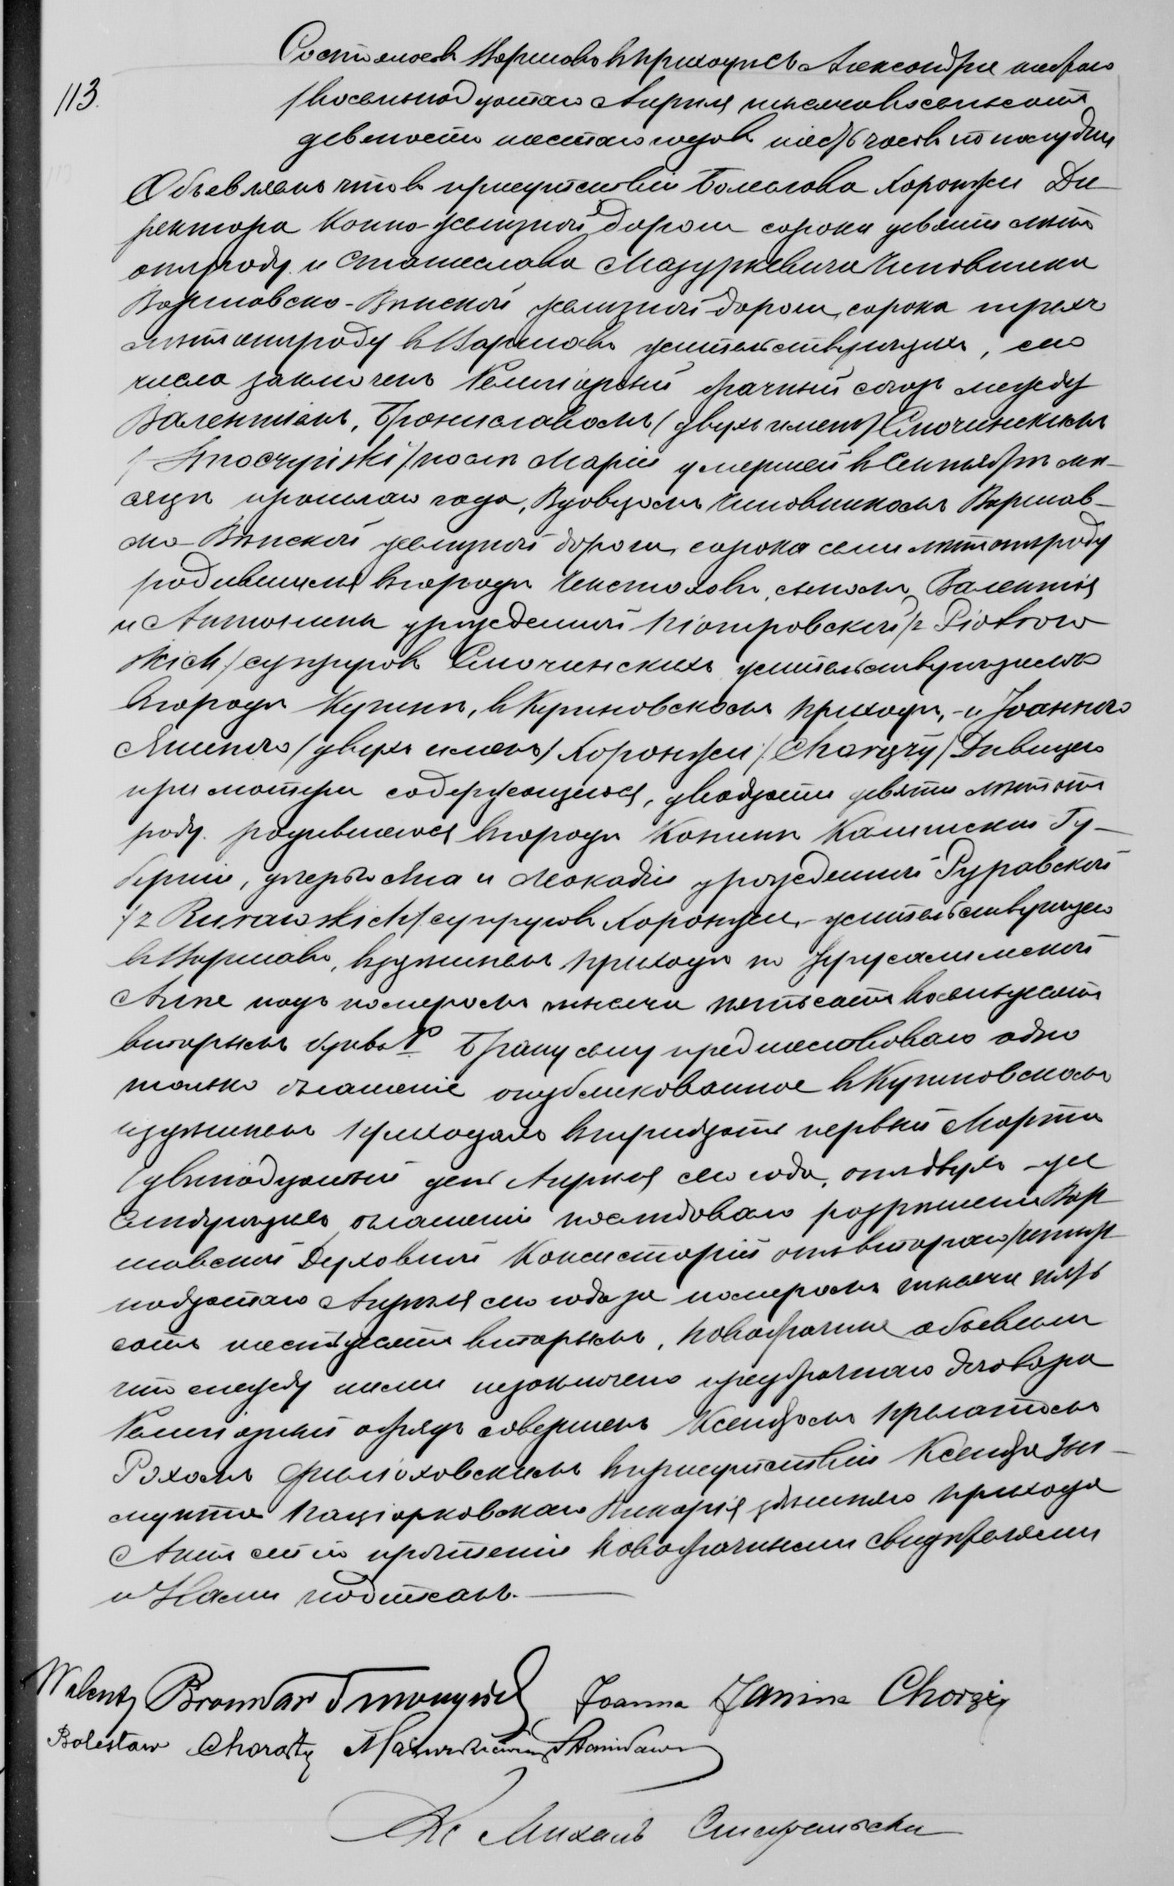 113.
Состоялось въ Варшавѣ въ приходѣ Св Александра шестаго
/восемнадцатаго Апрѣля тысяча восемьсотъ
девяносто шестаго года въ шесть часовъ по полудни
Объявляемъ что въ присутствіи Болеслава Хоронжи Ди-
ректора Конно-желѣзной дороги сорока девяти лѣтъ
отъ роду и Станислава Мазуркевича Чиновника
Варшавско-Вѣнской желѣзной дороги, сорока трехъ
лѣтъ отъ роду въ Варшавѣ жительствующихъ, сего
числа заключенъ Религіозный брачный союзъ между
Валентіемъ, Брониславомъ /двухъ именъ/ Смочинскимъ
/Smoczyński/ послѣ Маріи умершей въ Сентябрѣ мѣ-
сяцѣ прошлаго года, Вдовцомъ Чиновникомъ Варшав-
ско-Вѣнской желѣзной дороги, сорока семи лѣтъ отъ роду
родившимся въ городѣ Ченстоховѣ, сыномъ Валентія
и Антонины урожденной Піотровской /z Piotrow
skich/ супруговъ Смочинскихъ жительствующимъ
въ городѣ Кутнѣ, въ Кутновскомъ приходѣ, - и Іоанною
Яниною /двухъ именъ/ Хоронжи /Chorąży/ Дѣвицею
при матери содержащеюся, двадцати девяти лѣтъ отъ
роду родившеюся въ городѣ Конинѣ Калишской Гу-
берніи, дочерью Яна и Леокадіи урожденной Руравской
/z Rurawskich/ супруговъ Хоронжи, - жительствующею
въ Варшавѣ, въ здѣшнемъ приходѣ по Іерусалимской
Аллеѣ подъ номеромъ тысяча пятьсотъ восемьдесятъ
вторымъ буква P Браку сему предшествовало одно
только оглашеніе опубликованное въ Кутновскомъ
и здѣшнемъ приходахъ въ тридцать первый Марта
/двѣнадцатый день Апрѣля сего года, отъ двухъ же
слѣдующихъ оглашеній послѣдовало разрѣшеніе Вар
шавской Духовной Консисторіи отъ втораго/четыр
надцатаго Апрѣля сего года за номеромъ тысяча пять
сотъ шестьдесятъ вторымъ, Новобрачные объявили
что между ними не заключено предбрачнаго договора
Религіозный обрядъ совершенъ Ксендзомъ Прелатомъ
Рохомъ Филоховскимъ въ присутствіи Ксендза Зиг-
мунта Пацiорковскаго Викарія здѣшняго прихода
Актъ сей по прочтеніи Новобрачными свидѣтелями
и Нами подписанъ.
Walenty Bronisław Smoczyński Joanna Janina Chorąży
Bolesław Chorąży Mazurkiewicz Stanisław
Кс Михаилъ